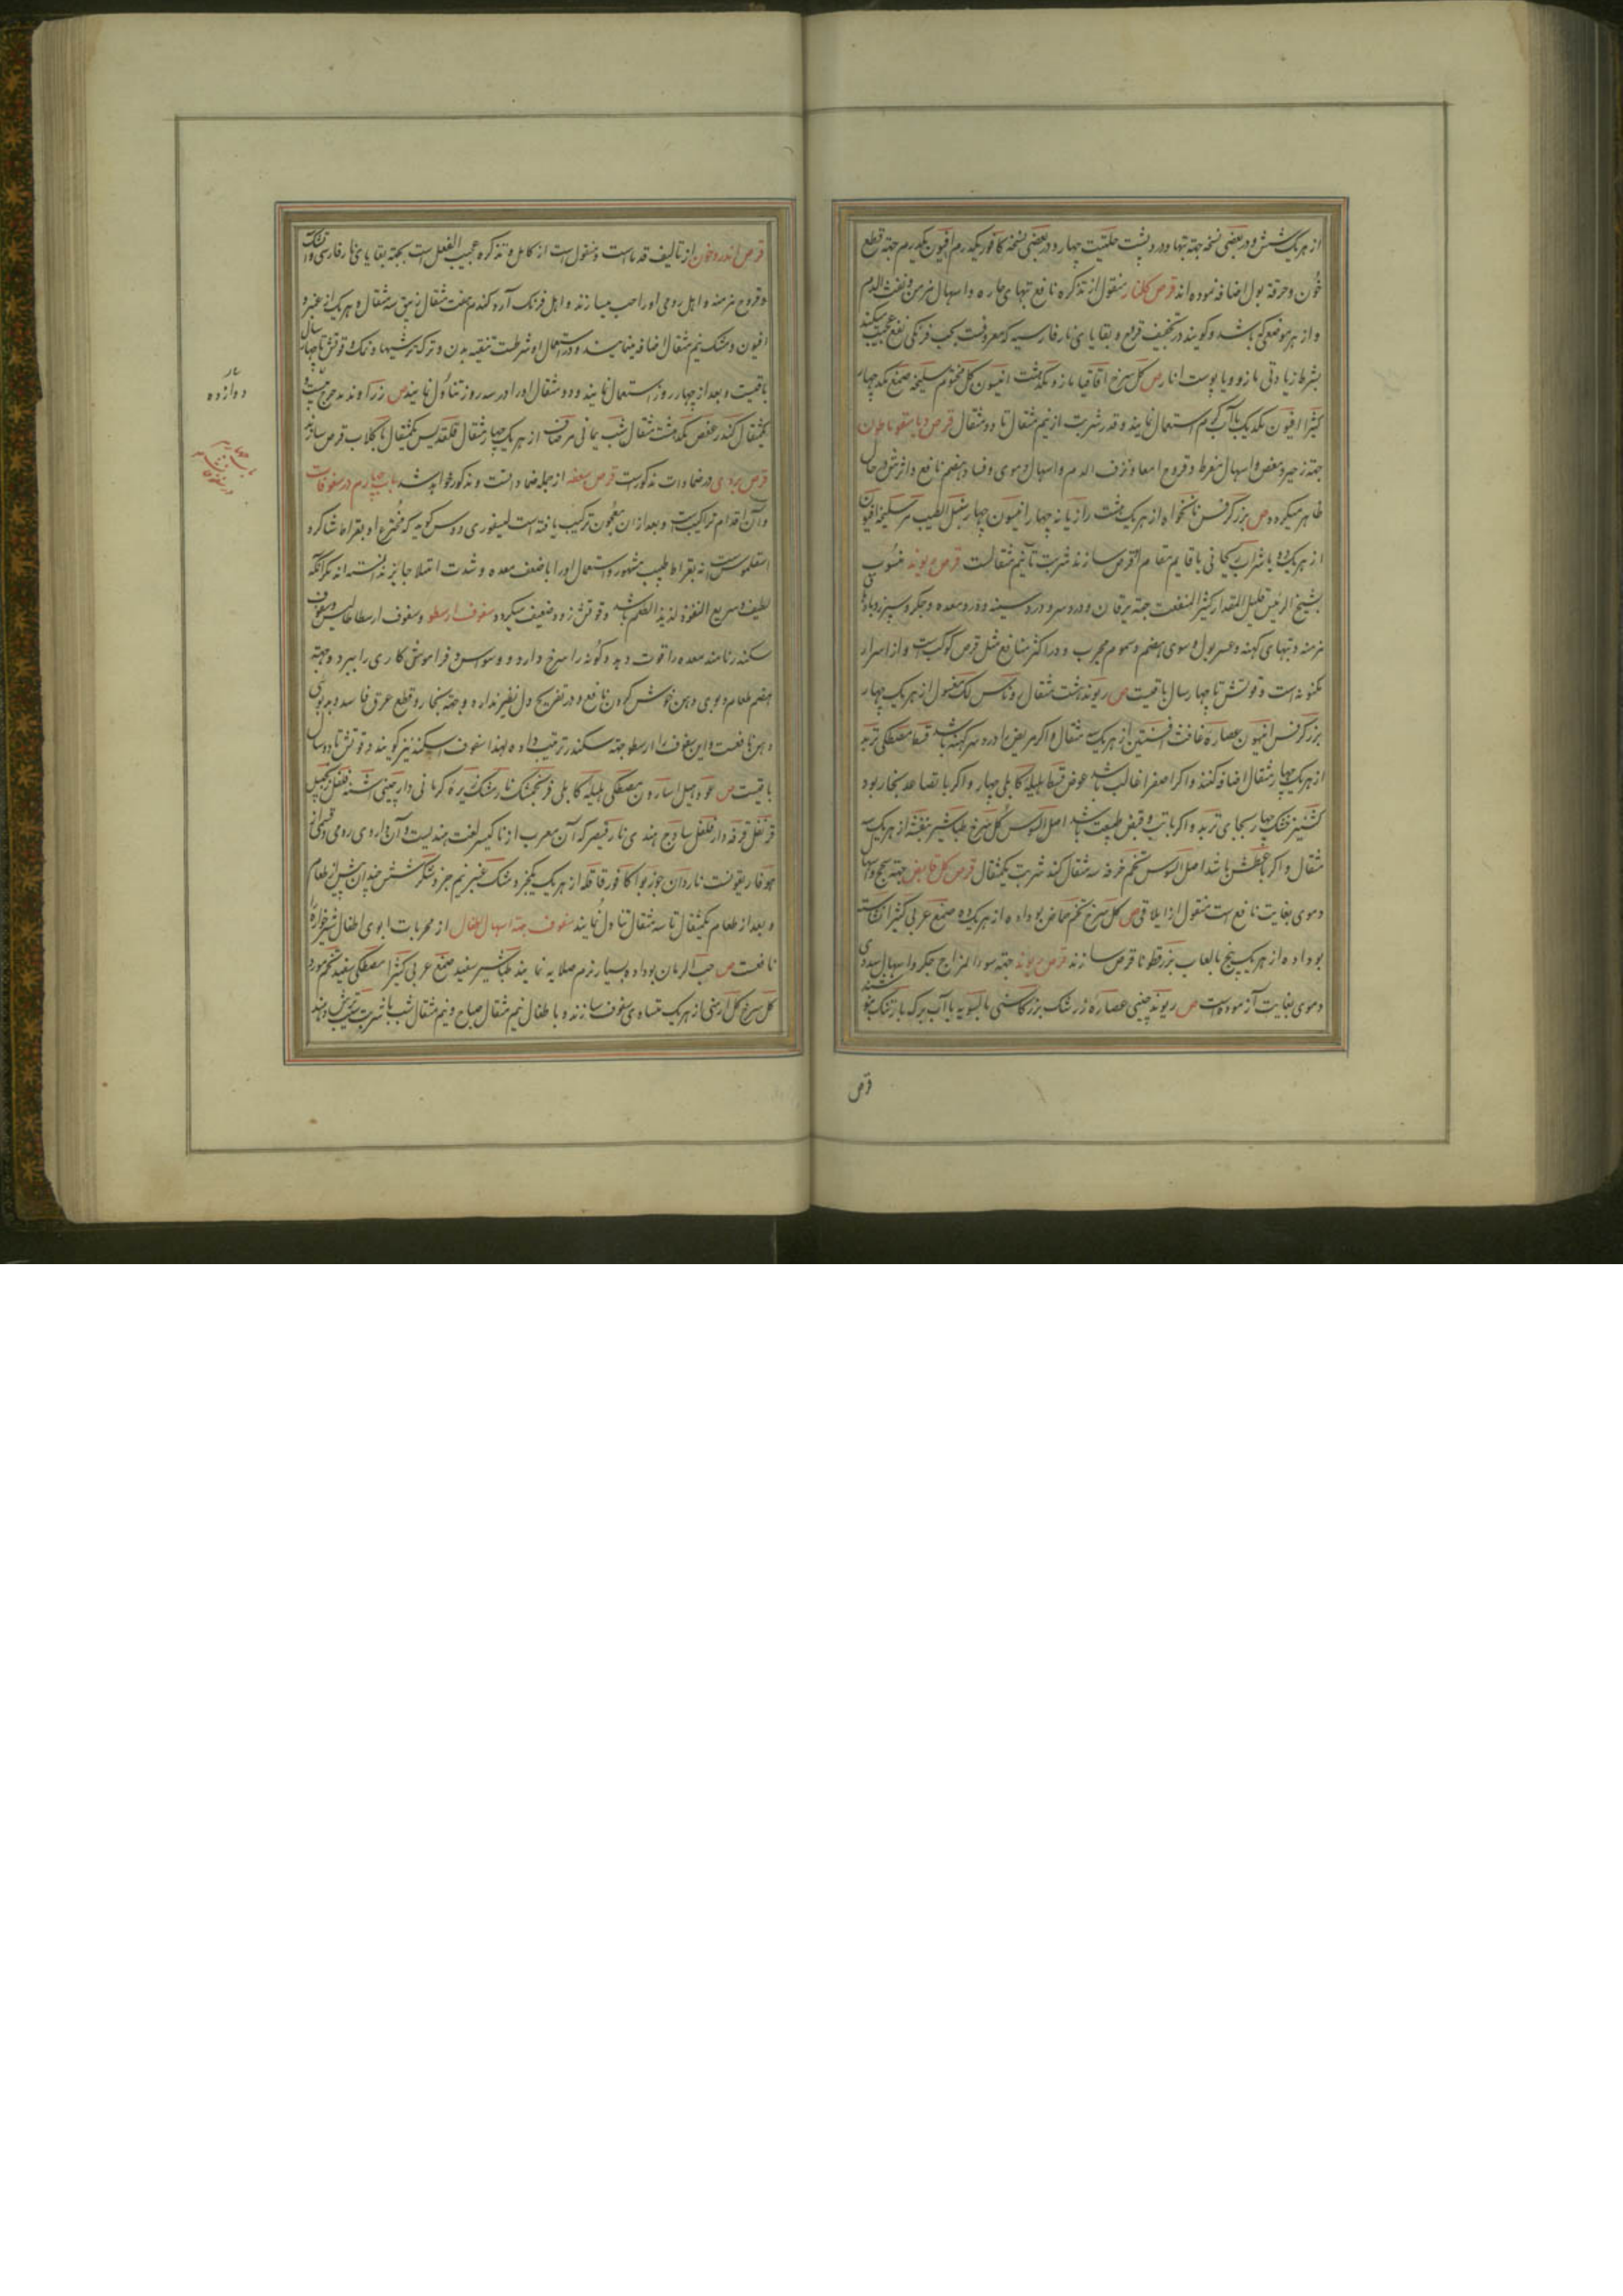 از هر یک شش و در بعضی نسخه جهته تبها و درد پشت حلتیت چهار و در بعضی نسخه کافور یکدرم افیون یکدرم جهته قطع
خون و حرقة بول اضافه نموده اند قرص کلنار منقول از تذکره نافع تبهای حاره و اسهال مزمن و نفث الدم
و از هر موضعی که باشد و کویند در تجفیف قروح و بقایای نار فارسیه که معروفست بحب فرنکی نفع عجیب میکند
بشرط زیادتی مازو و یا پوست انار ص کل سرخ اقاقیا مازو یکدهشت انیسون کل مختوم سلیخه صمغ یکد چهار
کثیرا افیون یکدیک باآب کرم استعمال نمایند و قدر شربت از نیم مثقال تا دو مثقال قرص دیاسقوناطون
جهته زحیر و مغص و اسهال مفرط و قروح امعا و نزف الدم و اسهال دموی و فساد هضم نافع و اثرش در حال
ظاهر میکردد ص بزر کرفس نانخواه از هر یک هشت رازیانه چهار انیسون چهار سنبل الطیب مر سلیخه افیون
از هر یک دو با شراب ریحانی یا قایم مقام او قرص سازند شربت تا نیم مثقالست قرص ریوند منسوب
بشیخ الرئیس قلیل المقدار کثیر المنفعت جهته یرقان و درد سر و درد سینه و درد معده و جکر و سپرز و باد
مزمنه و تبهای کهنه و عسر بول و سوی هضم و سموم مجرب و در اکثر منافع مثل قرص کوکب است و از اسرار
مکنونه است و قوتش تا چهار سال باقیست ص ریوند هشت مثقال روناس لک مغسول از هر یک چهار
بزر کرفس انیسون عصاره غافث افسنتین از هر یک سه مثقال و اکر مریض را درد سر کهنه باشد قسط مصطکی تربد
از هر یک چهار مثقال اضافه کنند و اکر صفرا غالب باشد عوض قسط هلیلۀ کابلی چهار و اکر با تصاعد بخار بود
کشنیز خشک چهار بجای تربد و اکر با تب و قبض طبیعت باشد اصل السوس کل سرخ طباشیر بنفشه از هر یک سه
مثقال و اکر با عطش باشد اصل السوس تخم خرفه سه مثقال کند شربت یکمثقال قرص کل قابض جهته سحج و اسهال
دموی بغایت نافع است منقول از ایلاقی ص کل سرخ تخم حماض بوداده از هر یک ده صمغ عربی کثیرا نشاسته
بوداده از هر یک پنج بالعاب بزر قطونا قرص سازند قرص ریوند جهته سوء المزاج جکر و اسهال سددی
دموی بغایت آزموده است ص ریوند چینی عصاره زرشک بزر کاسنی بالسویه باآب برک بارتنک
قرص
قرص اندروخون از تالیف قدماست و منقول است از کامل و تذکره عجیب الفعل است بجهته بقایای نار فارسی و آتشک
و قروح مزمنه و اهل رومی او را حب میسازند و اهل فرنک آرد کندم هفت مثقال زیبق سه مثقال و هر یک از عنبر و
افیون و مشک نیم مثقال اضافه مینمایند و در استعمال او شرطست تنقیه بدن و ترک ترشیها و نمک و قوتش تا چهار سال
باقیست و بعد از چهار روز استعمال نمایند و دو مثقال او را در سه روز تناول نمایند ص زراوند مدحرج بیست و
یکمثقال کندر عفص یکدهشت مثقال شب یمانی مر صاف از هر یک چهار مثقال قلقدیس یکمثقال با کلاب قرص سازند
قرص بردی در ضمادات مذکور است قرص سعفه از جمله ضمادا تست و مذکور خواهد شد باب چهارم در سفوفات
و آن اقدام تراکیب است و بعد از ان معجون ترکیب یافته است لیغوری دوس کوید که مخترع او بقراط شاکرد
اسقلموس است نه بقراط طبیب مشهور و استعمال او را با ضعف معده و شدت امتلا جایز ندانسته اند مکر آنکه
لطیف و سریع النفوذ لذیذ الطعم باشد و قوتش زود ضعیف میکردد سفوف ارسطو و سفوف ارسطاطالیس و سفوف
سکندر نامند معده را قوت دهد و کونه را سرخ دارد و وسواس و فراموش کاری را ببرد و جهته
هضم طعام و بوی دهن خوش کردن نافع و در تفریح دل نظیر ندارد و جهته بخار و قطع عرق فاسد و بدبوئی
دهن نافعست و این سفوف را ارسطو جهته سکندر ترتیب داده لهذا سفوف اسکندر نیز کویند و قوتش تا دو سال
باقیست ص عود هیل اسارون مصطکی هلیله کابلی فرنجمشک نارمشک زیره کرمانی دارچینی اشنه فلفل زنجبیل
قرنفل قرفه دارفلفل ساذج هندی نارقیصر که آن معرب از ناکیسر لغت هندیست و آن داروی رومی و
هوفاریقونست ناردان جوزبوا کافور قاقله از هر یک یکجزو مشک عنبر نیم جزو شکر شش چندان پیش از طعام
و بعد از طعام یکمثقال تا سه مثقال تناول نمایند سفوف جهته اسهال اطفال از مجربات ابوی اطفال شیرخواره را
نافعست ص حب الرمان بوداده بسیار نرم صلایه نمایند طباشیر سفید صمغ عربی کثیرا مصطکی سفید تخم مورد
کل سرخ کل ارمنی از هر یک مساوی سفوف سازند و با طفال نیم مثقال صباح و نیم مثقال شب با شربت سیب ترش دهند
دوازده
باب چهارم
در سفوفات